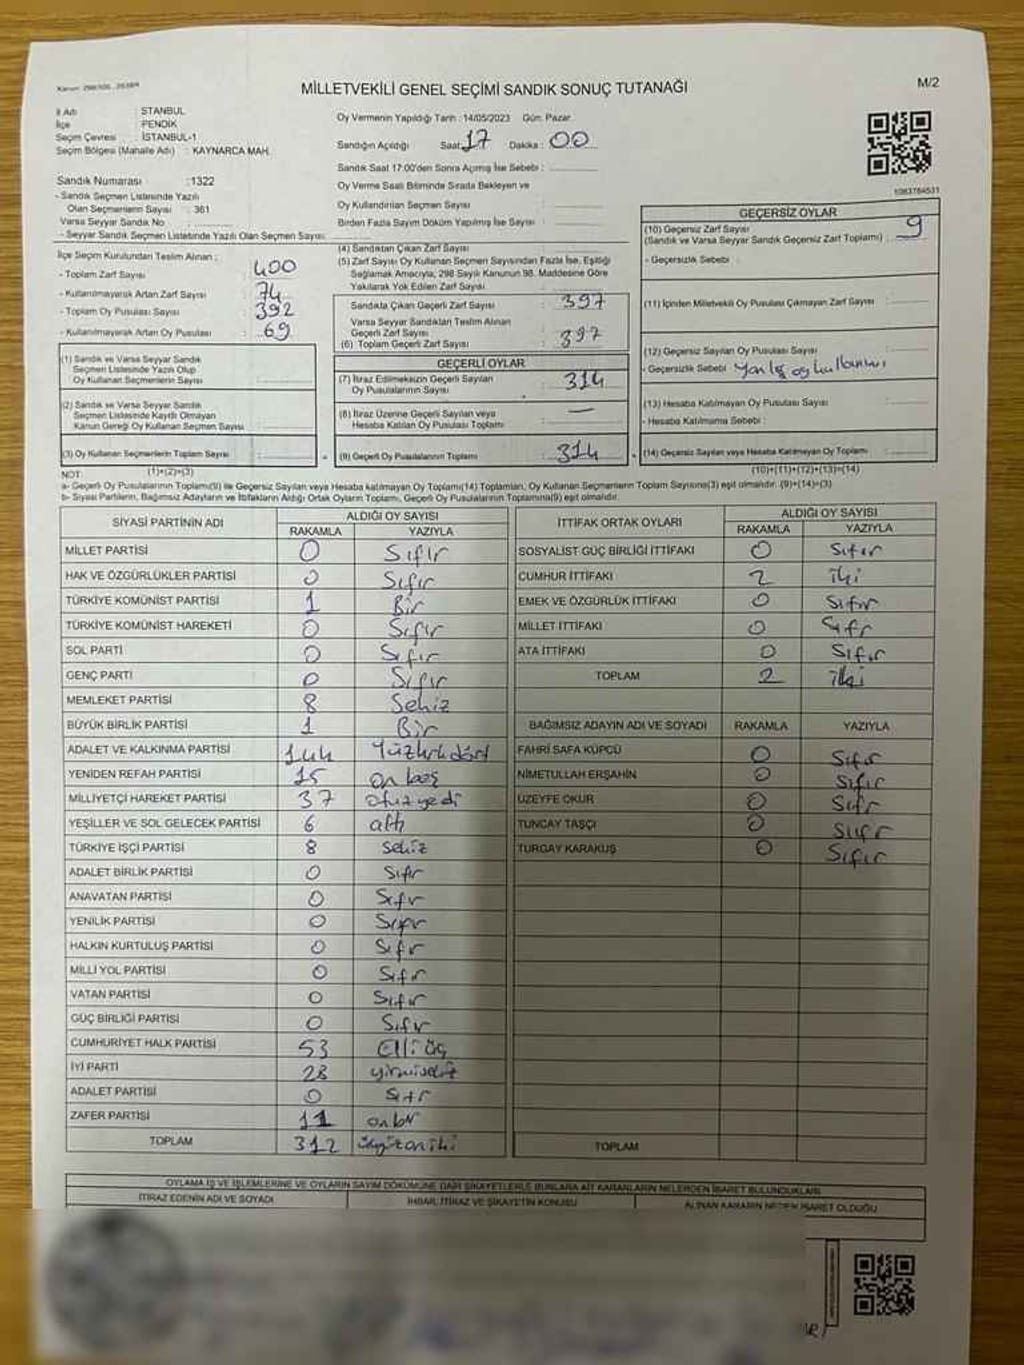 MİLLETVEKİLİ GENEL SEÇİMİ SANDIK SONUÇ TUTANAĞI
M/2
İl Adı : STANBUL
İlçe : PENDİK
Seçim Çevresi : İSTANBUL-1
Seçim Bölgesi (Mahalle Adı) : KAYNARCA MAH.
Oy Vermenin Yapıldığı Tarih : 14/05/2023 Gün: Pazar
Sandığın Açıldığı Saat: 17 Dakika: 00
Sandık Saat 17:00'den Sonra Açılmış İse Sebebi :
Oy Verme Saati Bitiminde Sırada Bekleyen ve
Oy Kullandırılan Seçmen Sayısı :
Birden Fazla Sayım Döküm Yapılmış İse Sayısı :
1083784531
Sandık Numarası : 1322
- Sandık Seçmen Listesinde Yazılı
Olan Seçmenlerin Sayısı : 361
Varsa Seyyar Sandık No :
- Seyyar Sandık Seçmen Listesinde Yazılı Olan Seçmen Sayısı :
İlçe Seçim Kurulundan Teslim Alınan :
- Toplam Zarf Sayısı : 400
- Kullanılmayarak Artan Zarf Sayısı : 74
- Toplam Oy Pusulası Sayısı : 392
- Kullanılmayarak Artan Oy Pusulası : 69
(1) Sandık ve Varsa Seyyar Sandık
Seçmen Listesinde Yazılı Olup
Oy Kullanan Seçmenlerin Sayısı :
(2) Sandık ve Varsa Seyyar Sandık
Seçmen Listesinde Kayıtlı Olmayan
Kanun Gereği Oy Kullanan Seçmen Sayısı :
(3) Oy Kullanan Seçmenlerin Toplam Sayısı :
(1)+(2)=(3)
(4) Sandıktan Çıkan Zarf Sayısı :
(5) Zarf Sayısı Oy Kullanan Seçmen Sayısından Fazla İse, Eşitliği
Sağlamak Amacıyla, 298 Sayılı Kanunun 98. Maddesine Göre
Yakılarak Yok Edilen Zarf Sayısı :
Sandıkta Çıkan Geçerli Zarf Sayısı : 397
Varsa Seyyar Sandıktan Teslim Alınan
Geçerli Zarf Sayısı :
(6) Toplam Geçerli Zarf Sayısı : 397
GEÇERLİ OYLAR
(7) İtiraz Edilmeksizin Geçerli Sayılan
Oy Pusulalarının Sayısı : 314
(8) İtiraz Üzerine Geçerli Sayılan veya
Hesaba Katılan Oy Pusulası Toplamı : —
(9) Geçerli Oy Pusulalarının Toplamı : 314
GEÇERSİZ OYLAR
(10) Geçersiz Zarf Sayısı
(Sandık ve Varsa Seyyar Sandık Geçersiz Zarf Toplamı) : 9
- Geçersizlik Sebebi :
(11) İçinden Milletvekili Oy Pusulası Çıkmayan Zarf Sayısı :
(12) Geçersiz Sayılan Oy Pusulası Sayısı :
- Geçersizlik Sebebi : Yanlış oy kullanımı
(13) Hesaba Katılmayan Oy Pusulası Sayısı :
- Hesaba Katılmama Sebebi :
(14) Geçersiz Sayılan veya Hesaba Katılmayan Oy Toplamı :
(10)+(11)+(12)+(13)=(14)
NOT:
a- Geçerli Oy Pusulalarının Toplamı(9) ile Geçersiz Sayılan veya Hesaba katılmayan Oy Toplamı(14) Toplamları, Oy Kullanan Seçmenlerin Toplam Sayısına(3) eşit olmalıdır. (9)+(14)=(3)
b- Siyasi Partilerin, Bağımsız Adayların ve İttifakların Aldığı Ortak Oyların Toplamı, Geçerli Oy Pusulalarının Toplamına(9) eşit olmalıdır.
SİYASİ PARTİNİN ADI ALDIĞI OY SAYISI
RAKAMLA YAZIYLA
MİLLET PARTİSİ 0 Sıfır
HAK VE ÖZGÜRLÜKLER PARTİSİ 0 Sıfır
TÜRKİYE KOMÜNİST PARTİSİ 1 Bir
TÜRKİYE KOMÜNİST HAREKETİ 0 Sıfır
SOL PARTİ 0 Sıfır
GENÇ PARTİ 0 Sıfır
MEMLEKET PARTİSİ 8 Sekiz
BÜYÜK BİRLİK PARTİSİ 1 Bir
ADALET VE KALKINMA PARTİSİ 144 Yüzkırkdört
YENİDEN REFAH PARTİSİ 15 on beş
MİLLİYETÇİ HAREKET PARTİSİ 37 otuz yedi
YEŞİLLER VE SOL GELECEK PARTİSİ 6 altı
TÜRKİYE İŞÇİ PARTİSİ 8 sekiz
ADALET BİRLİK PARTİSİ 0 Sıfır
ANAVATAN PARTİSİ 0 Sıfır
YENİLİK PARTİSİ 0 Sıfır
HALKIN KURTULUŞ PARTİSİ 0 Sıfır
MİLLİ YOL PARTİSİ 0 Sıfır
VATAN PARTİSİ 0 Sıfır
GÜÇ BİRLİĞİ PARTİSİ 0 Sıfır
CUMHURİYET HALK PARTİSİ 53 Elli üç
İYİ PARTİ 28 yirmisekiz
ADALET PARTİSİ 0 Sıfır
ZAFER PARTİSİ 11 onbir
TOPLAM 312 üçyüzoniki
İTTİFAK ORTAK OYLARI ALDIĞI OY SAYISI
RAKAMLA YAZIYLA
SOSYALİST GÜÇ BİRLİĞİ İTTİFAKI 0 Sıfır
CUMHUR İTTİFAKI 2 iki
EMEK VE ÖZGÜRLÜK İTTİFAKI 0 Sıfır
MİLLET İTTİFAKI 0 Sıfır
ATA İTTİFAKI 0 Sıfır
TOPLAM 2 iki
BAĞIMSIZ ADAYIN ADI VE SOYADI RAKAMLA YAZIYLA
FAHRİ SAFA KÜPCÜ 0 Sıfır
NİMETULLAH ERŞAHİN 0 Sıfır
ÜZEYFE OKUR 0 Sıfır
TUNCAY TAŞÇI 0 Sıfır
TURGAY KARAKUŞ 0 Sıfır
TOPLAM
OYLAMA İŞ VE İŞLEMLERİNE VE OYLARIN SAYIM DÖKÜMÜNE DAİR ŞİKAYETLERLE BUNLARA AİT KARARLARIN NELERDEN İBARET BULUNDUKLARI
İTİRAZ EDENİN ADI VE SOYADI İHBAR, İTİRAZ VE ŞİKAYETİN KONUSU ALINAN KARARIN NEDEN İBARET OLDUĞU